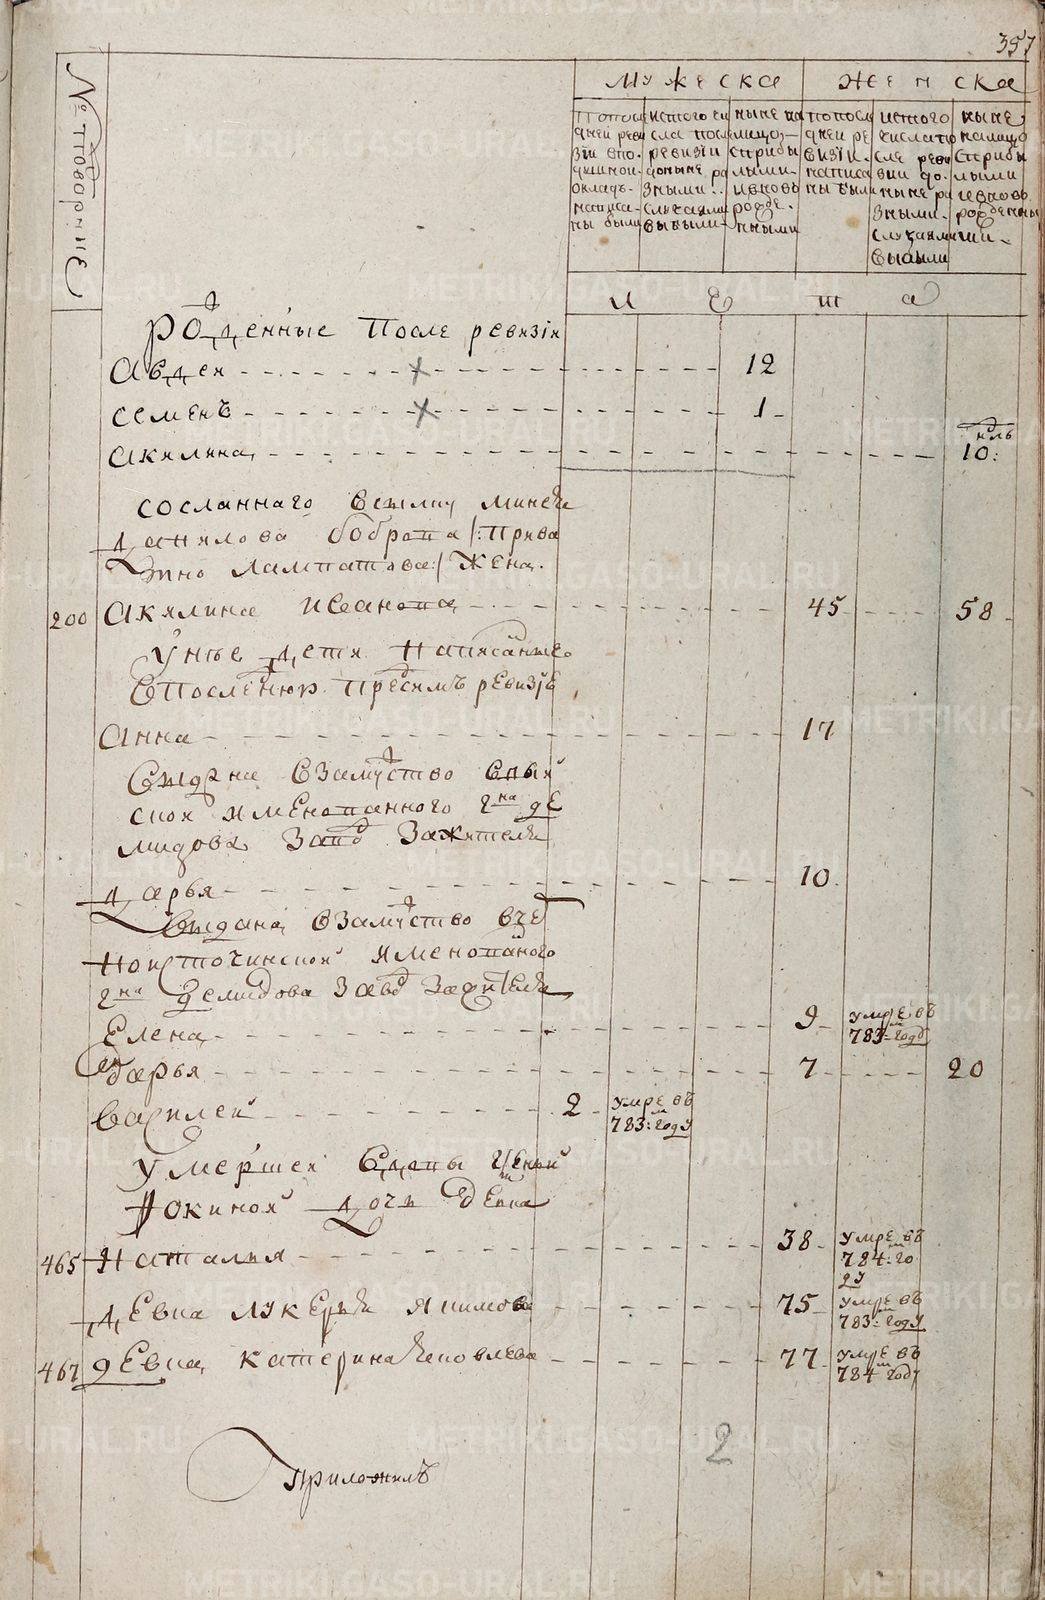 357
№ по норные
мужеска
женска
По последней ревизии в подушной оклад написаны были
Ис того числа после ревизии до ныне разными случаями выбыли
Ныне на лицо с прибылыми и вновь рожденными
По последней ревизии написаны были
Ис того числа после ревизии до ныне разными случаями выбыли
Ныне на лицо с прибылыми и вновь рожденными
лета
рожденные после ревизiи
Авдей 12
Семенъ 1
нль
Акилина 10:
сосланнаго в силку минея
Данилова боброва /: прива
лампатова :/ жена
200 Акилина иванова 45 58
У нее дети написанные
в последнюю пред симъ ревизiе
Анна 17
Выдана в замужство в вый
ской именованного гна де
мидова завод за жителя
Дарья 10
Выдана в замужство в че
ноисточинской именованого
гна Демидова завод за жителя
Елена 9 умре въ
783 году
Дарья 7 20
Василей 2 умре въ
783: году
умершей вдовы
Фокиной дочь девка
465 Наталья 38 умре въ
784: го
ду
девка лукерья якимова 75 умре въ
783: году
467 девка катерина яковлева 77 умре въ
784 году
2
приложилъ
METRIKI.GASO-URAL.RU